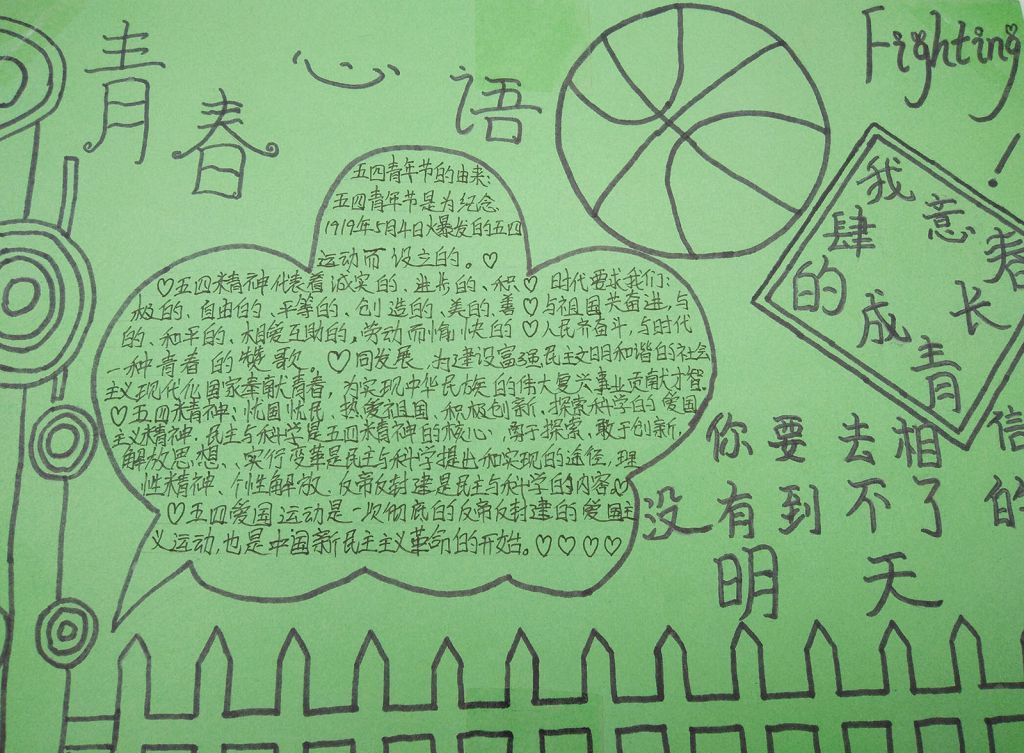 青春心语
Fighting!
五四青年节的由来:
五四青年节是为纪念
1919年5月4日火暴发的五四
运动而设立的。♡
♡五四精神代表着诚实的、进步的、积
极的、自由的、平等的、创造的、美的、善
的、和平的、相爱互助的,劳动而愉快的
一种青春的赞歌。
♡时代要求我们:
♡与祖国共奋进,与
♡人民齐奋斗,与时代
♡同发展,为建设富强民主文明和谐的社会
主义现代化国家奉献青春,为实现中华民族的伟大复兴事业贡献才智.
♡五四精神:忧国忧民、热爱祖国、积极创新、探索科学的爱国
主义精神.民主与科学是五四精神的核心,勇于探索、敢于创新,
解放思想、实行变革是民主与科学提出和实现的途径,理
性精神、个性解放、反帝反封建是民主与科学的内容♡
♡五四爱国运动是一次彻底的反帝反封建的爱国主
义运动,也是中国新民主主义革命的开始。♡♡♡♡
我意
肆
的成长
青春
你要去相信
没有到不了的
明天